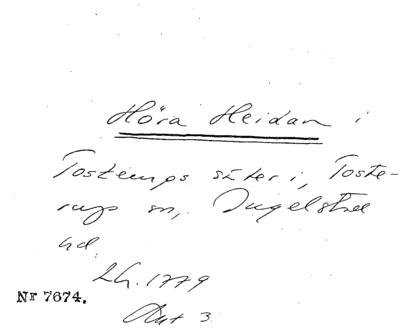 Höra Heidan i
Tosterups säteri, Toste-
rups sn, Ingelstad
hd.
Lh. 1779
Akt 3.
Nr 7674.